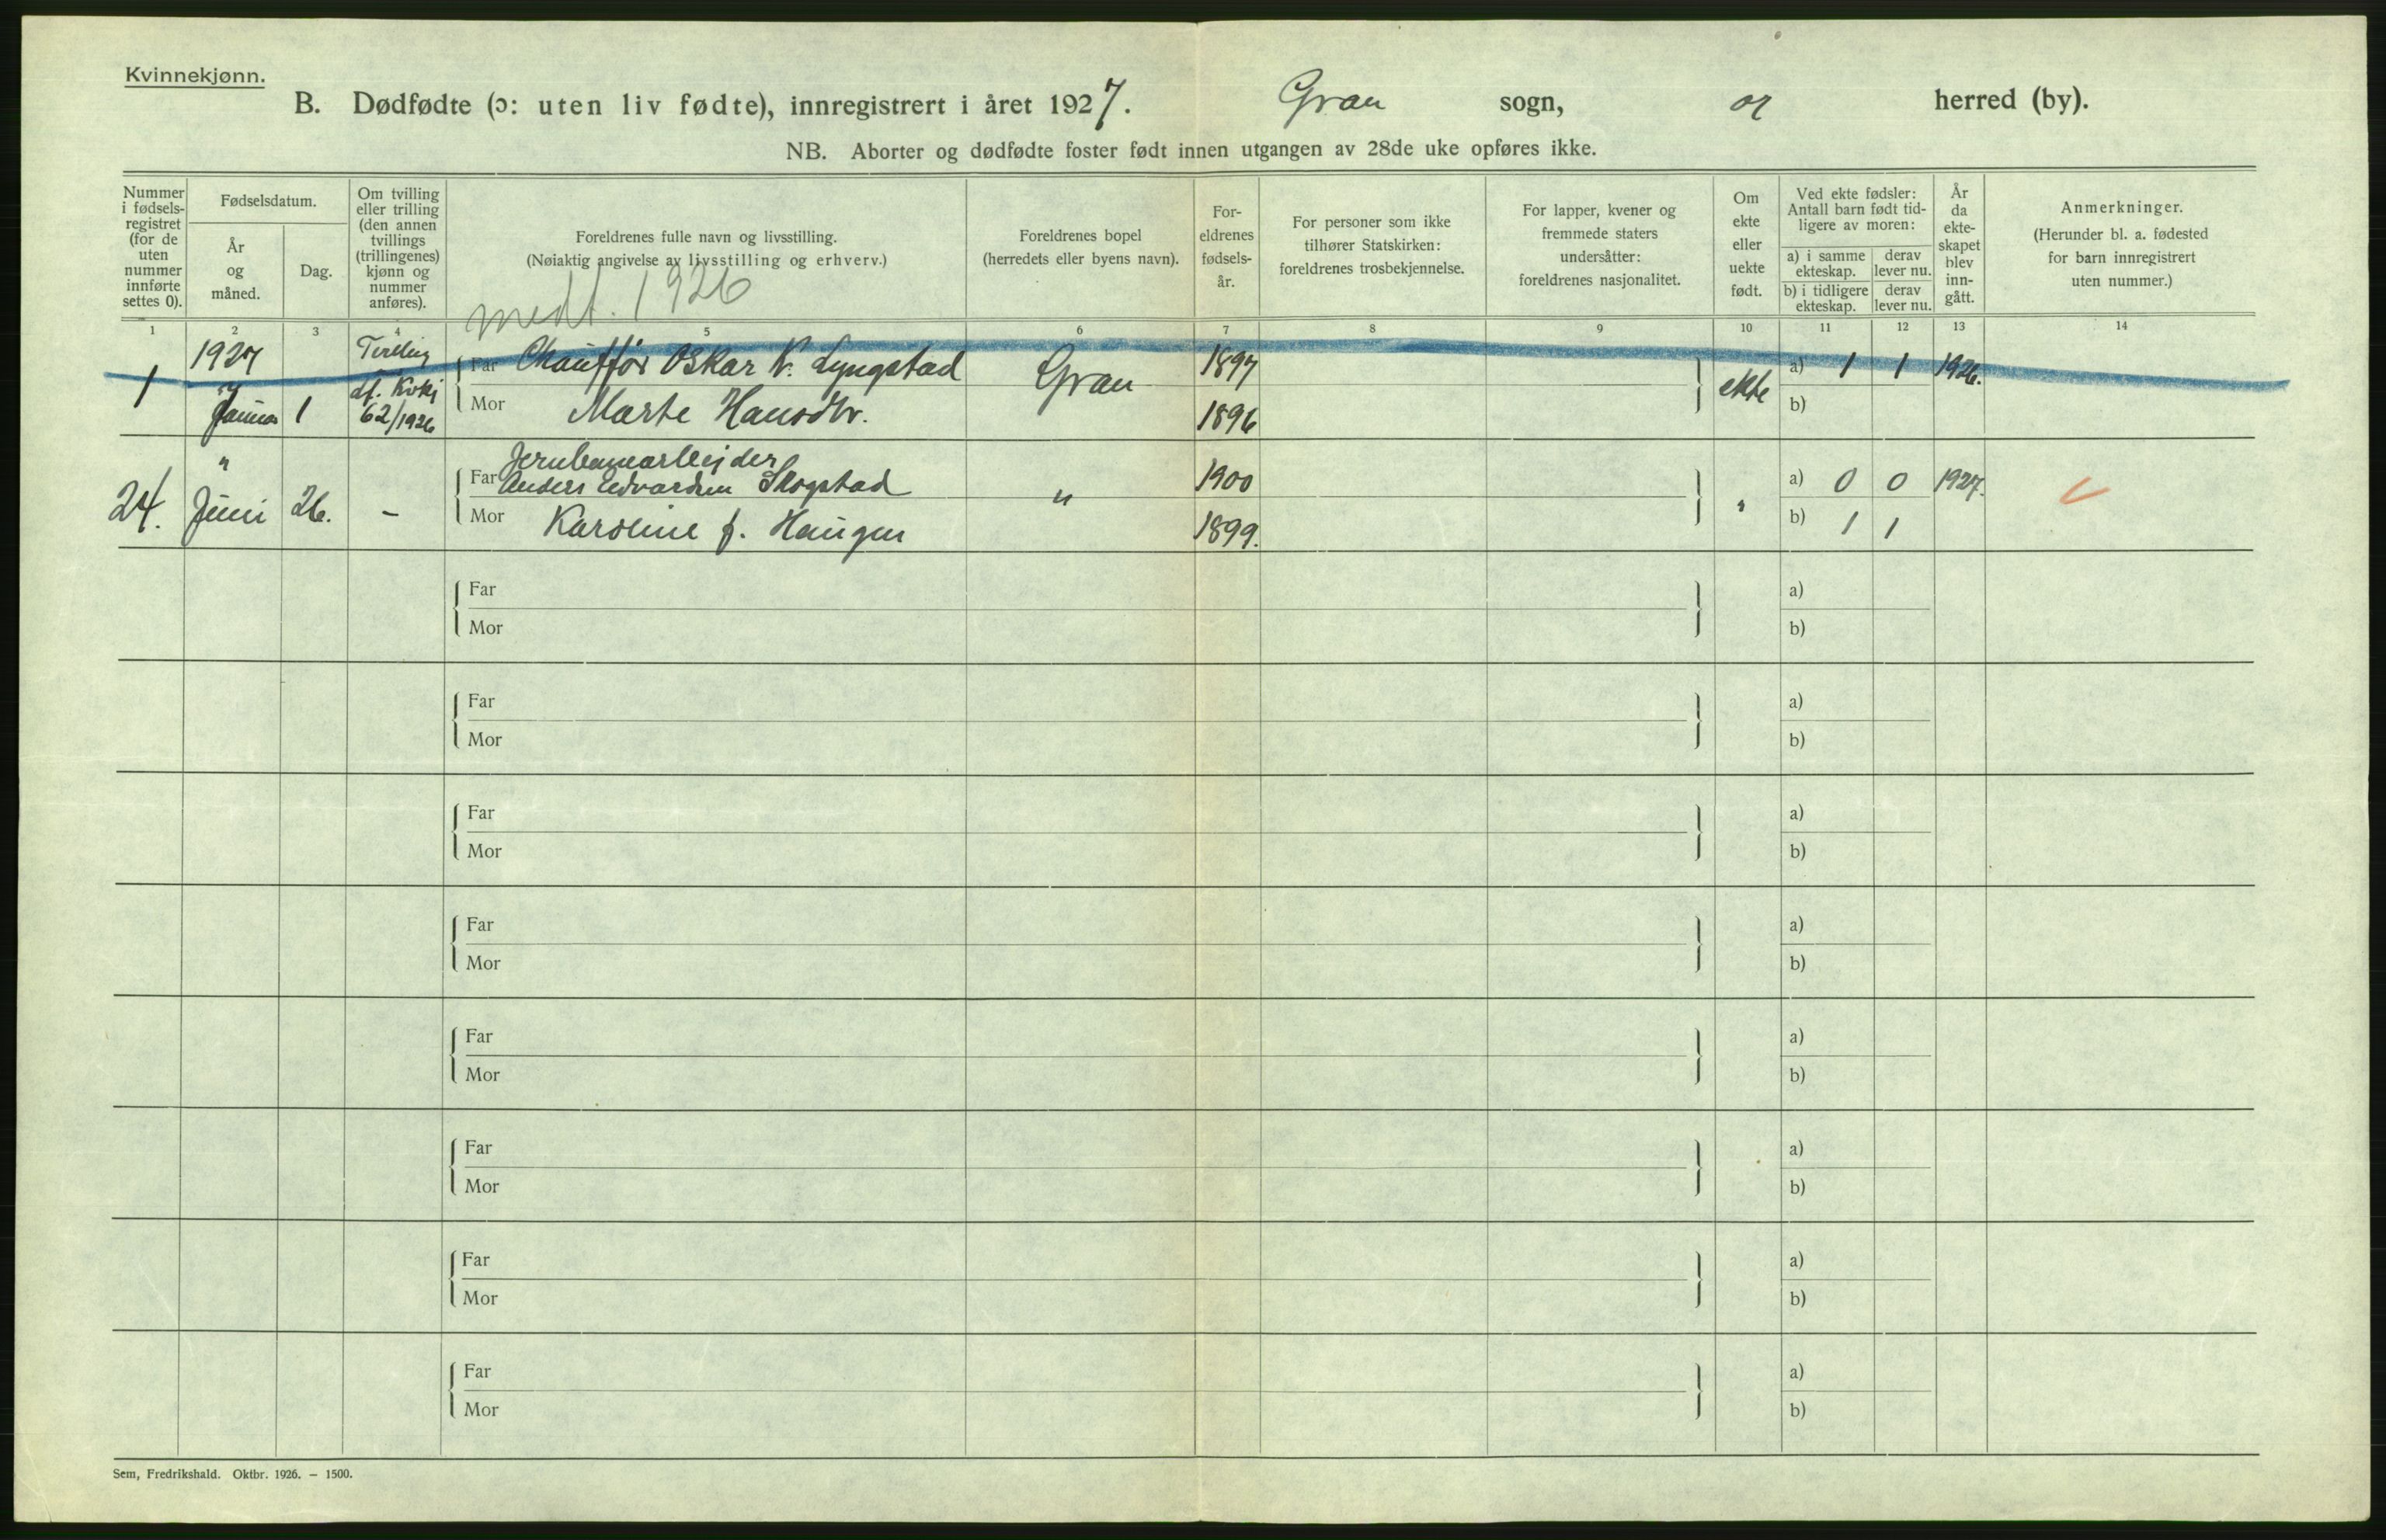 Kvinnekjønn.
B. Dødfødte (ɔ: uten liv fødte), innregistrert i året 1927. Gran sogn, og herred (by).
NB. Aborter og dødfødte foster født innen utgangen av 28de uke opføres ikke.
Nummer i fødsels- registret (for de uten nummer innførte settes 0).
Fødselsdatum.
År og måned.
Dag.
Om tvilling eller trilling (den annen tvillings (trillingenes) kjønn og nummer anføres).
Foreldrenes fulle navn og livsstilling.
(Nøiaktig angivelse av livsstilling og erhverv.)
medt. 1926
Foreldrenes bopel
(herredets eller byens navn).
For- eldrenes fødsels- år.
For personer som ikke tilhører Statskirken: foreldrenes trosbekjennelse.
For lapper, kvener og fremmede staters undersåtter: foreldrenes nasjonalitet.
Om ekte eller uekte født.
Ved ekte fødsler: Antall barn født tid- ligere av moren:
a) i samme ekteskap.
derav lever nu.
b) i tidligere ekteskap.
derav lever nu.
År da ekte- skapet blev inn- gått.
Anmerkninger.
(Herunder bl. a. fødested for barn innregistrert uten nummer.)
1 2 3 4 5 6 7 8 9 10 11 12 13 14
1 1927 Januar 1 62/1926
Far Chauffør Oskar N. Lyngstad Gran 1897 ekte a) 1 1 1926.
Mor Marte Hansdtr. 1896 b)
24. " Juni 26. -
Jernbanearbeider
Far Anders Edvardsen Skogstad " 1900 " a) 0 0 1927.
Mor Karoline f. Haugen 1899. b) 1 1
Far a)
Mor b)
Far a)
Mor b)
Far a)
Mor b)
Far a)
Mor b)
Far a)
Mor b)
Far a)
Mor b)
Far a)
Mor b)
Far a)
Mor b)
Sem, Fredrikshald. Oktbr. 1926. – 1500.